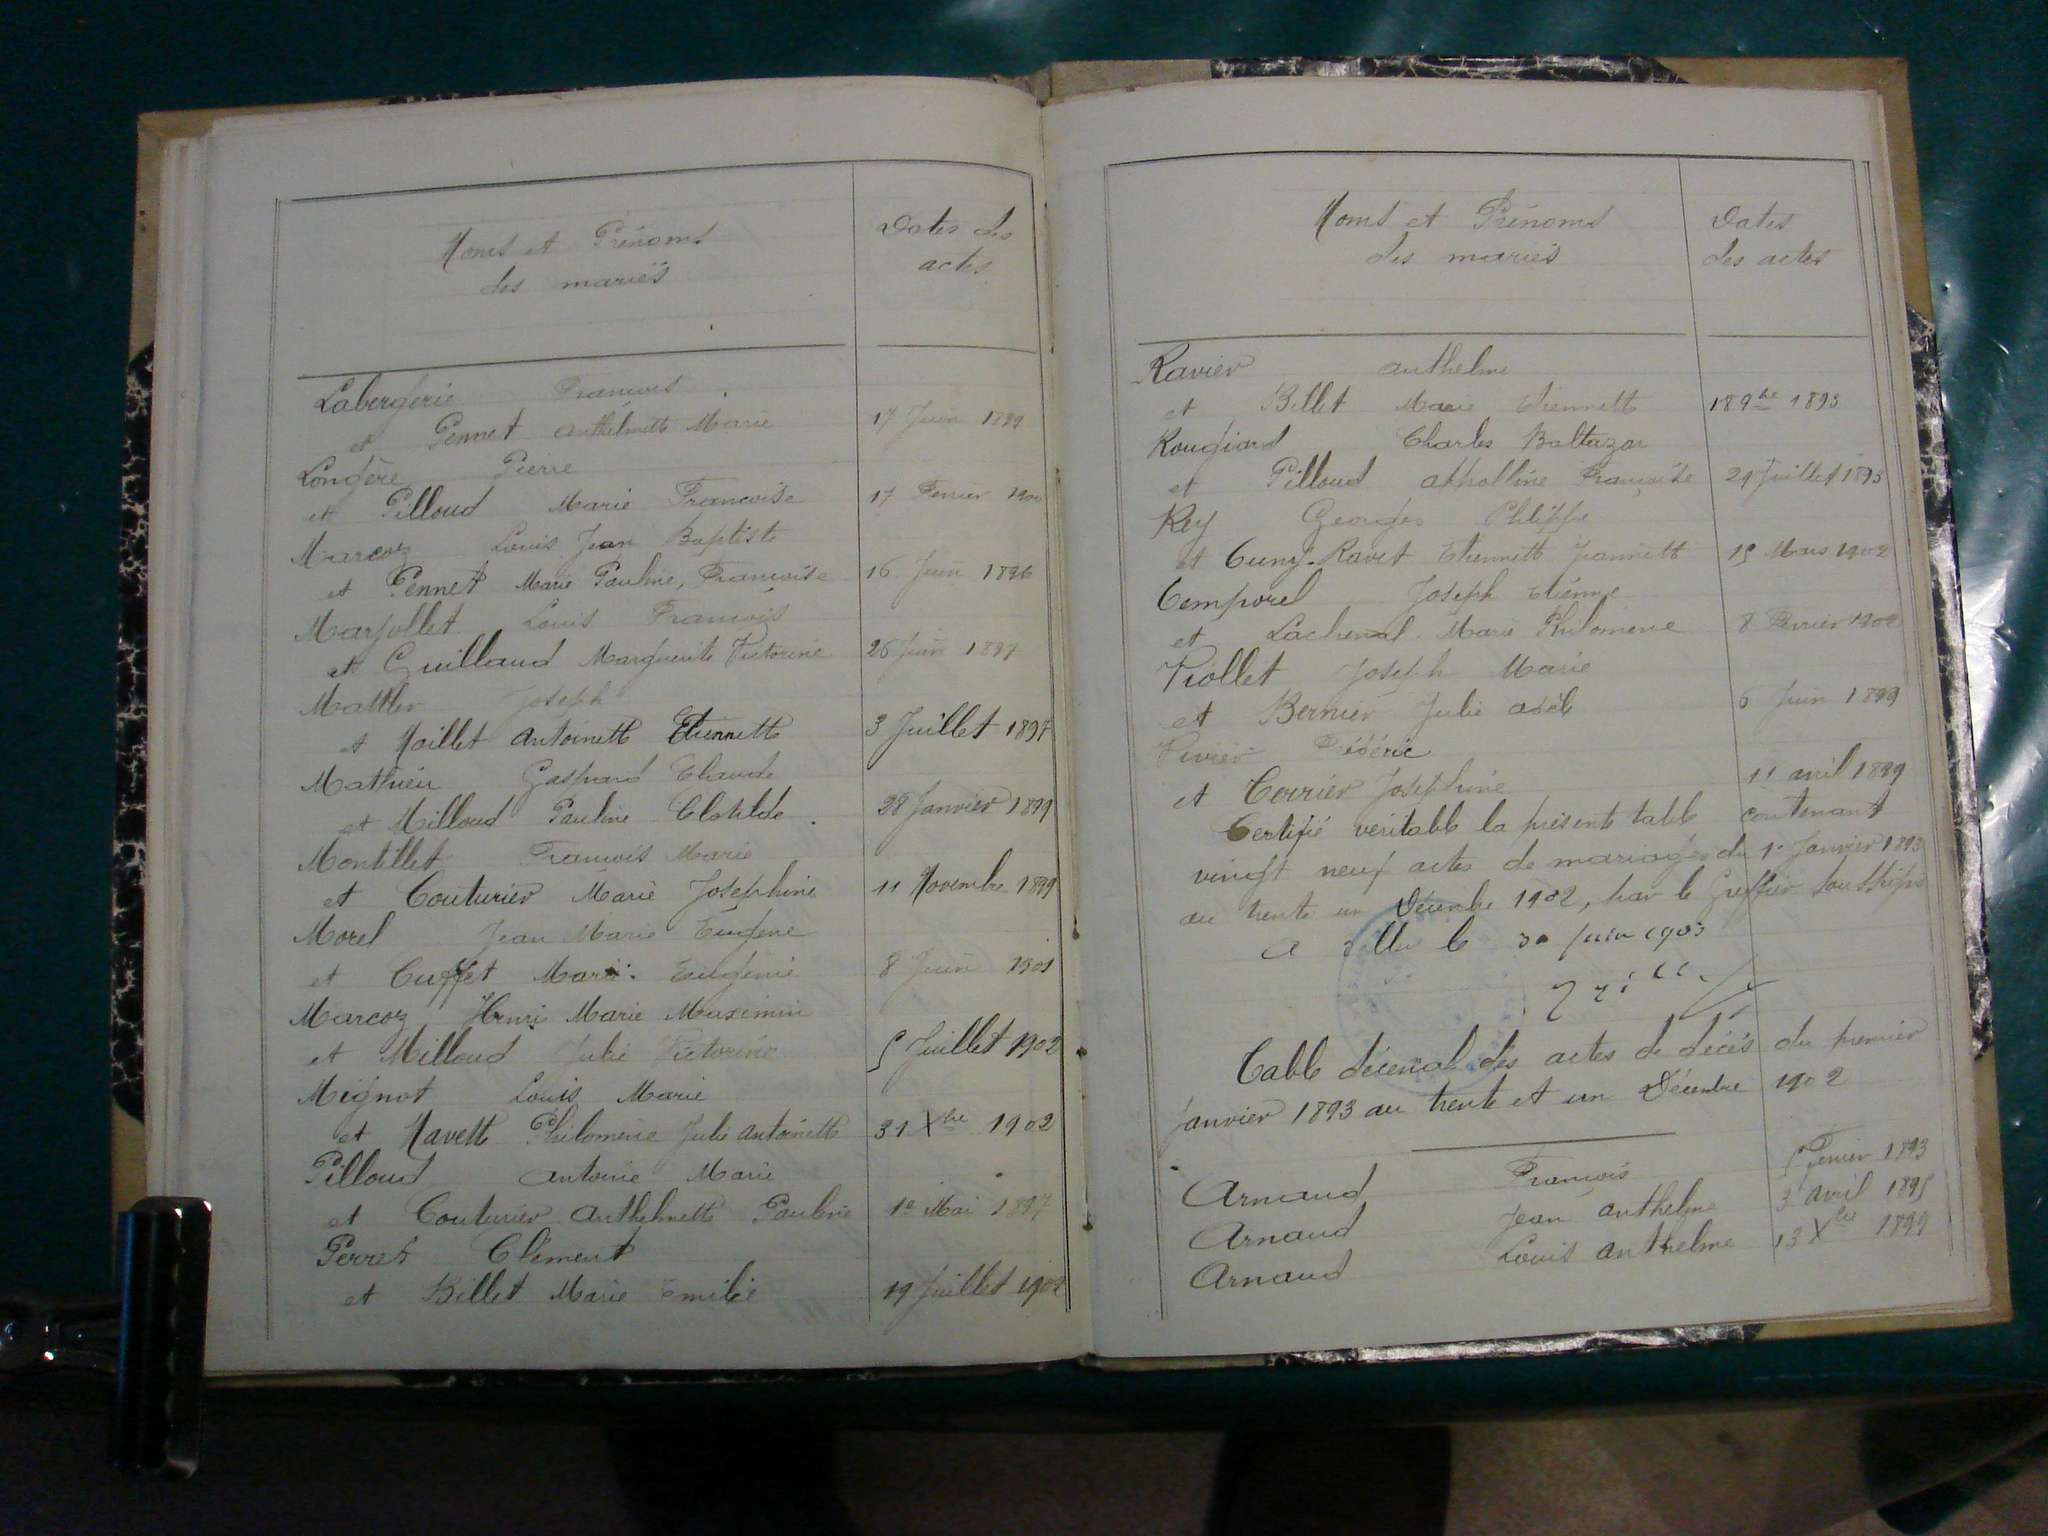 Noms et Prénoms
des mariés
Dates des
actes
Labergerie François
et Pennet Anthelmette Marie 17 Juin 1899
Longère Pierre
et Pilloud Marie Françoise 17 Fevrier 1900
Marcoz Louis Jean Baptiste
et Pennet Marie Pauline, Françoise 16 Juin 1896
Marjollet Louis François
et Guilland Marguerite Victorine 26 Juin 1897
Mattler Joseph
et Maillet Antoinette Etiennette 3 Juillet 1897
Mathieu Gaspard Claude
et Milloud Pauline Clotilde 28 Janvier 1899
Montillet François Marie
et Couturier Marie Josephine 11 Novembre 1899
Morel Jean Marie Eugène
et Cuffet Marie Eugénie 8 Juin 1901
Marcoz Henri Marie Maximin
et Milloud Julie Victorine 5 Juillet 1902
Mignot Louis Marie
et Navette Philomène Julie Antoinette 31 Xbre 1902
Pilloud Antoine Marie
et Couturier Anthelmette Pauline 1e Mai 1897
Perret Clément
et Billet Marie Emilie 19 Juillet 1902
Noms et Prénoms
des mariés
Dates
des actes
Ravier Anthelme
et Billet Marie Etiennette 18 9bre 1893
Rougiard Charles Baltazar
et Pilloud Appolline Françoise 29 Juillet 1893
Rey Georges Philippe
et Cuny-Ravet Etiennette Jeannette 15 Mars 1902
Temporel Joseph Etienne
et Lachenal Marie Philomène 8 Fevrier 1902
Viollet Joseph Marie
et Bernier Julie Adèle 6 Juin 1899
Vivier Frédéric
et Terrier Josephine 11 avril 1899
Certifié véritable la présente table contenant
vingt neuf actes de mariages du 1er Janvier 1893
au trente un Décembre 1902, par le Greffier soussigné
A le 30 Juin 1903
Table décenale des actes de décès du premier
Janvier 1893 au trente et un Décembre 1902
Arnaud François 5 Fevrier 1893
Arnaud Jean Anthelme 3 avril 1895
Arnaud Louis Anthelme 13 Xbre 1899